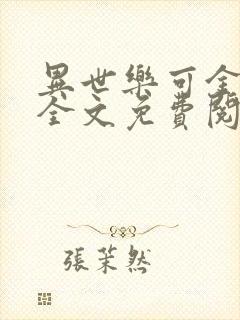 異世樂可全
全文免費閱
張茉然